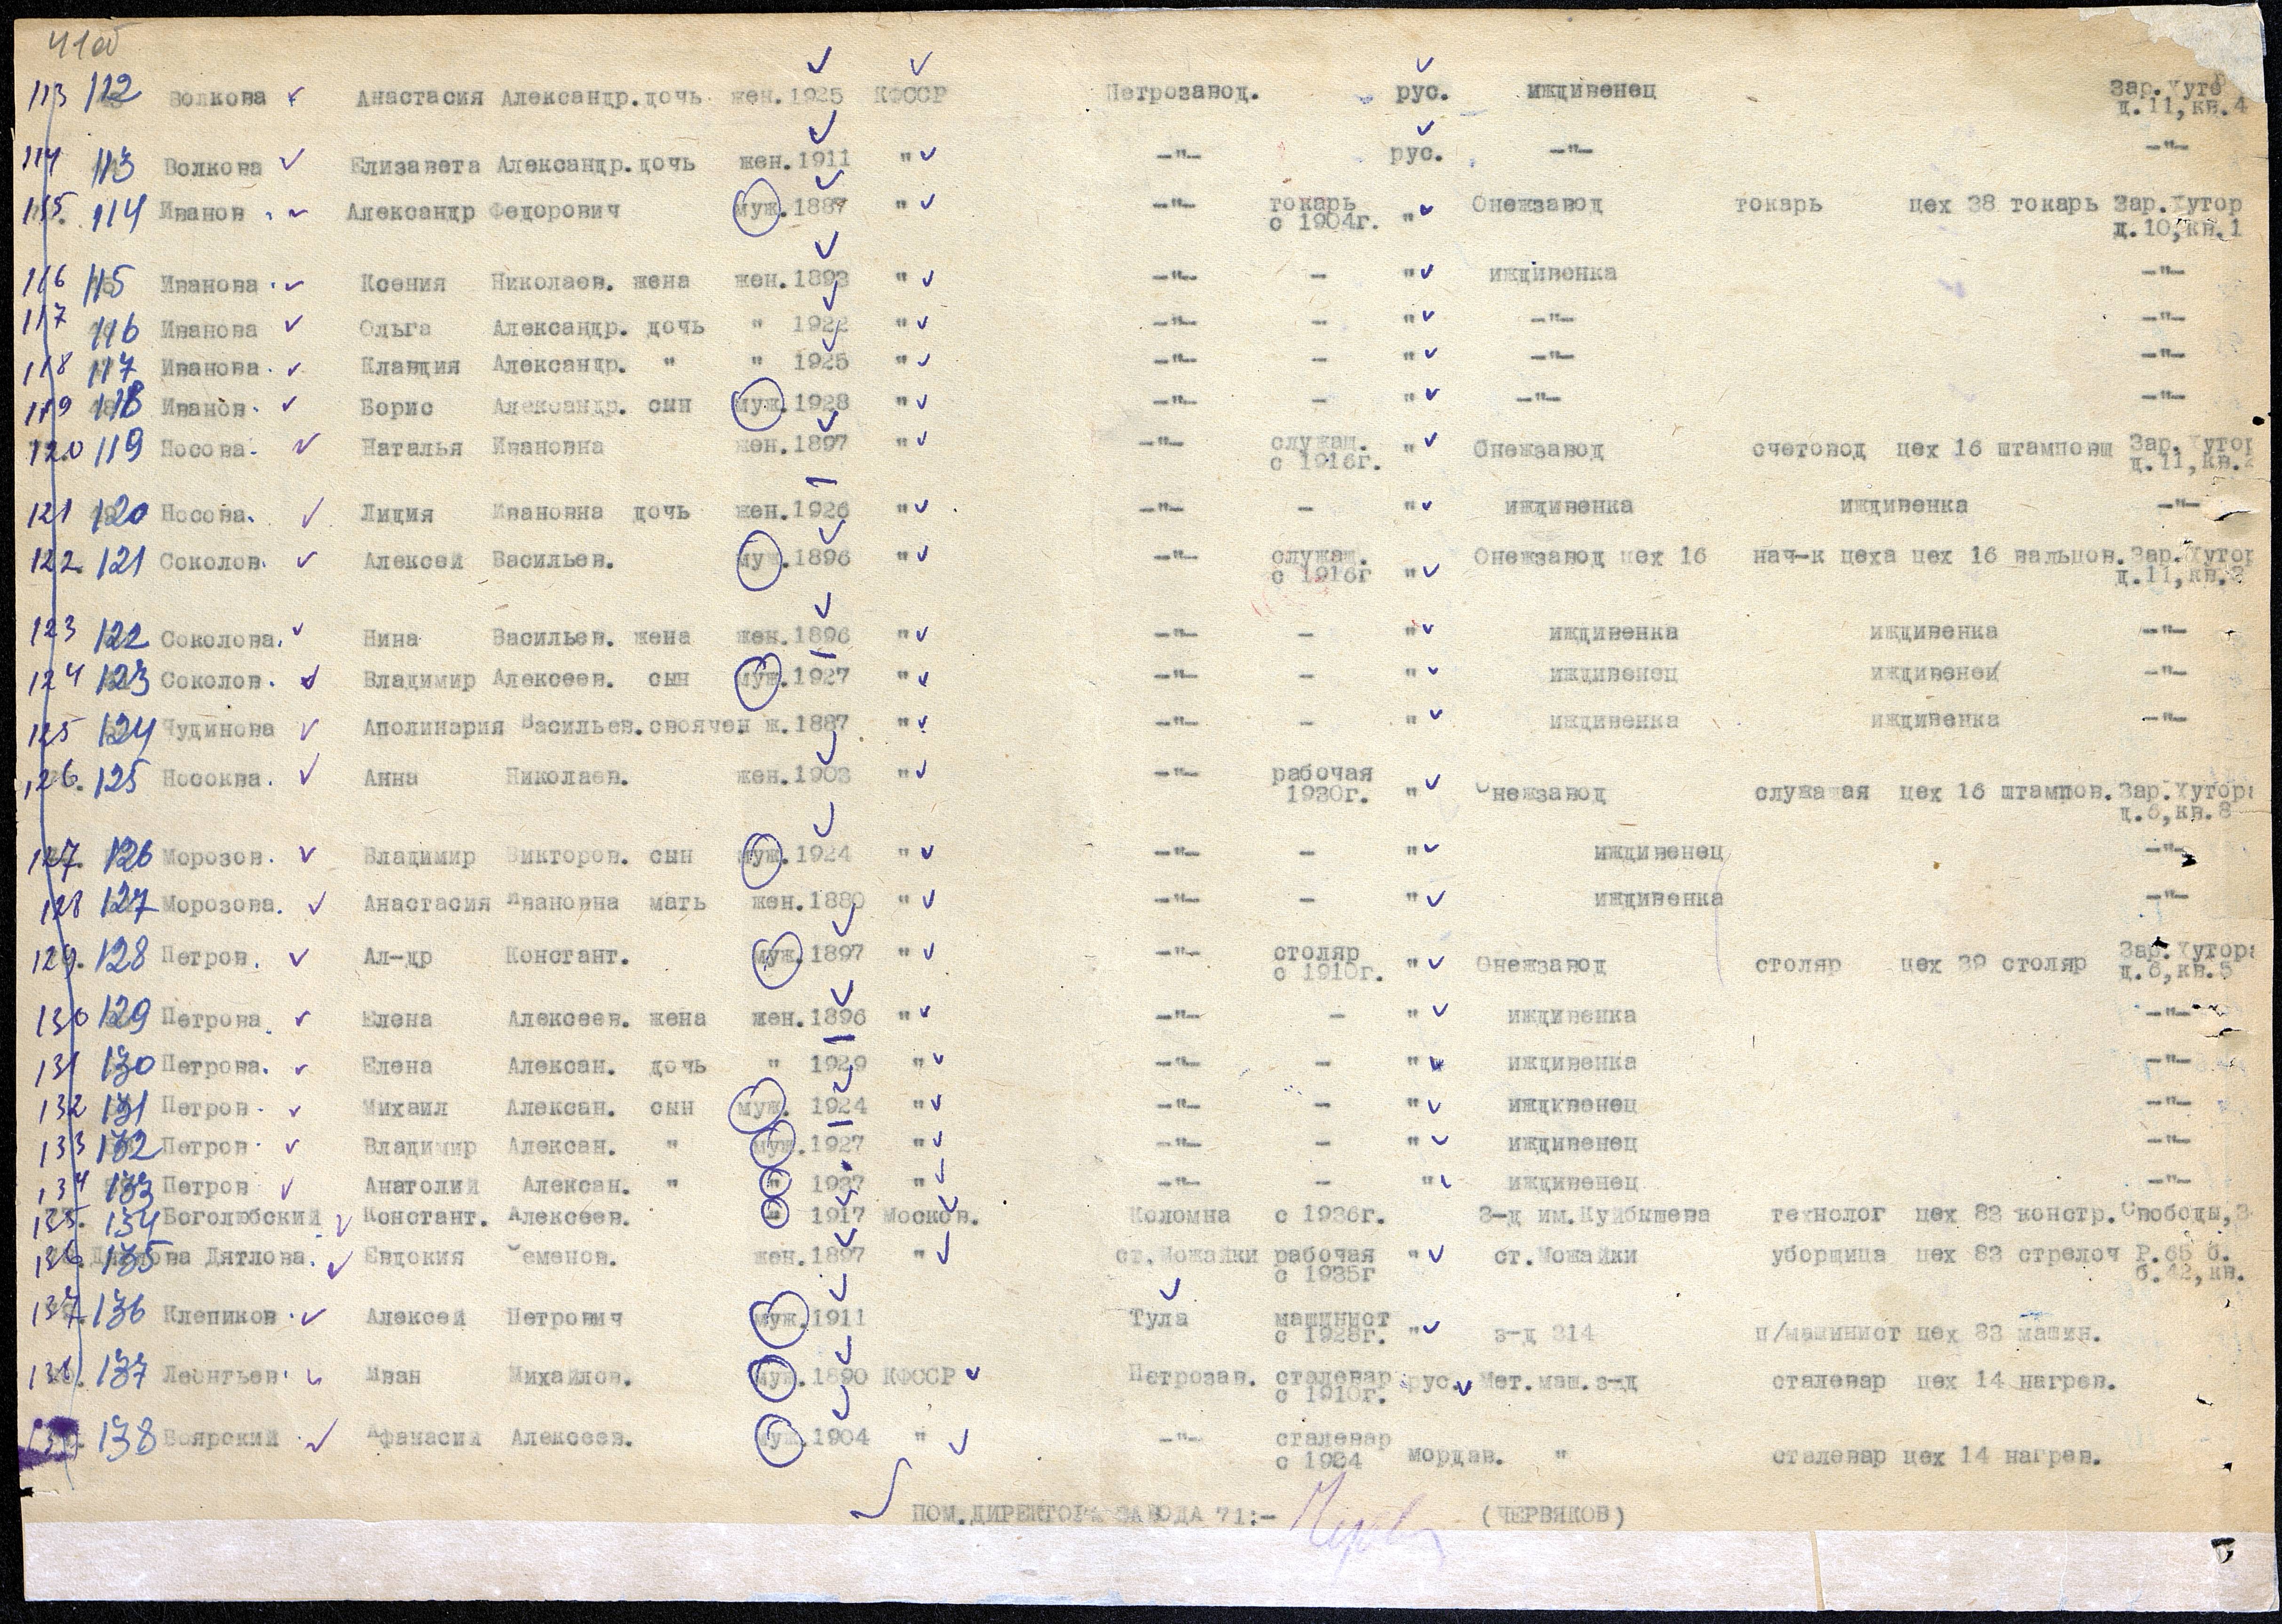 41об
113 112 Волкова Анастасия Александр. дочь жен. 1925 КФССР Петрозавод. рус. иждивенец Зар. Хуто
д. 11, кв. 4
114 113 Волкова Елизавета Александр. дочь жен. 1911 " -"- рус. -"- -"-
115. 114 Иванов Александр Федорович муж. 1887 " -"- токарь " Онежзавод токарь цех 38 токарь Зар. Хутор
с 1904г. д. 10, кв. 1
116 115 Иванова Ксения Николаев. жена жен. 1893 " -"- - " иждивенка -"-
117 116 Иванова Ольга Александр. дочь " 1922 " -"- - " -"- -"-
118 117 Иванова Клавдия Александр. " " 1925 " -"- - " -"- -"-
119 118 Иванов. Борис Александр. сын муж. 1928 " -"- - " -"- -"-
120 119 Носова. Наталья Ивановна жен. 1897 " -"- служащ. " Онежзавод счетовод цех 16 штамповщ Зар. Хутор
с 1916г. д. 11, кв. 2
121 120 Носова. Лидия Ивановна дочь жен. 1926 " -"- - " иждивенка иждивенка -"-
122. 121 Соколов. Алексей Васильев. муж. 1896 " -"- служащ. " Онежзавод цех 16 нач-к цеха цех 16 вальцов. Зар. Хутор
с 1916г д. 11, кв. 3
123 122 Соколова. Нина Васильев. жена жен. 1896 " -"- - " иждивенка иждивенка -"-
124 123 Соколов. Владимир Алексеев. сын муж. 1927 " -"- - " иждивенец иждивеней -"-
125 124 Чудинова Аполинария Васильев. своячен ж. 1887 " -"- - " иждивенка иждивенка -"-
126. 125 Носоква. Анна Николаев. жен. 1903 " -"- рабочая " Онежзавод служащая цех 16 штампов. Зар. Хутора
1930г. д. 6, кв. 8
127. 126 Морозов. Владимир Викторов. сын муж. 1924 " -"- - " иждивенец -"-
128 127 Морозова. Анастасия Ивановна мать жен. 1880 " -"- - " иждивенка -"-
129. 128 Петров. Ал-др Констант. муж. 1897 " -"- столяр " Онежзавод столяр цех 39 столяр Зар. Хутора
с 1910г. д. 6, кв. 5
130 129 Петрова. Елена Алексеев. жена жен. 1896 " -"- - " иждивенка -"-
131 130 Петрова. Елена Алексан. дочь " 1929 " -"- - " иждивенка -"-
132 131 Петров. Михаил Алексан. сын муж. 1924 " -"- - " иждквенец -"-
133 132 Петров. Владимир Алексан. " муж. 1927 " -"- - " иждивенец -"-
134 133 Петров Анатолий Алексан. " " 1937 " -"- - " иждивенец -"-
135. 134 Боголюбский Констант. Алексеев. " 1917 Москов. Коломна с 1936г. З-д им. Куйбышева технолог цех 83 констр. Свободы, 3
136 135 Дятлова. Евдокия Семенов. жен. 1897 " ст. Можайки рабочая " ст. Можайки уборщица цех 83 стрелоч Р. 65 б.
с 1935г б. 42, кв.
137. 136 Клепиков. Алексей Петрович муж. 1911 Тула машинист " з-д 314 п/машинист цех 83 машин.
с 1928г.
138. 137 Леонтьев. Иван Михайлов. муж. 1890 КФССР Петрозав. сталевар рус. Мет. маш. з-д сталевар цех 14 нагрев.
с 1910г.
139. 138 Боярский Афанасий Алексеев. муж. 1904 " -"- сталевар мордав. " сталевар цех 14 нагрев.
с 1924
ПОМ. ДИРЕКТОРА ЗАВОДА 71:- (ЧЕРВЯКОВ)